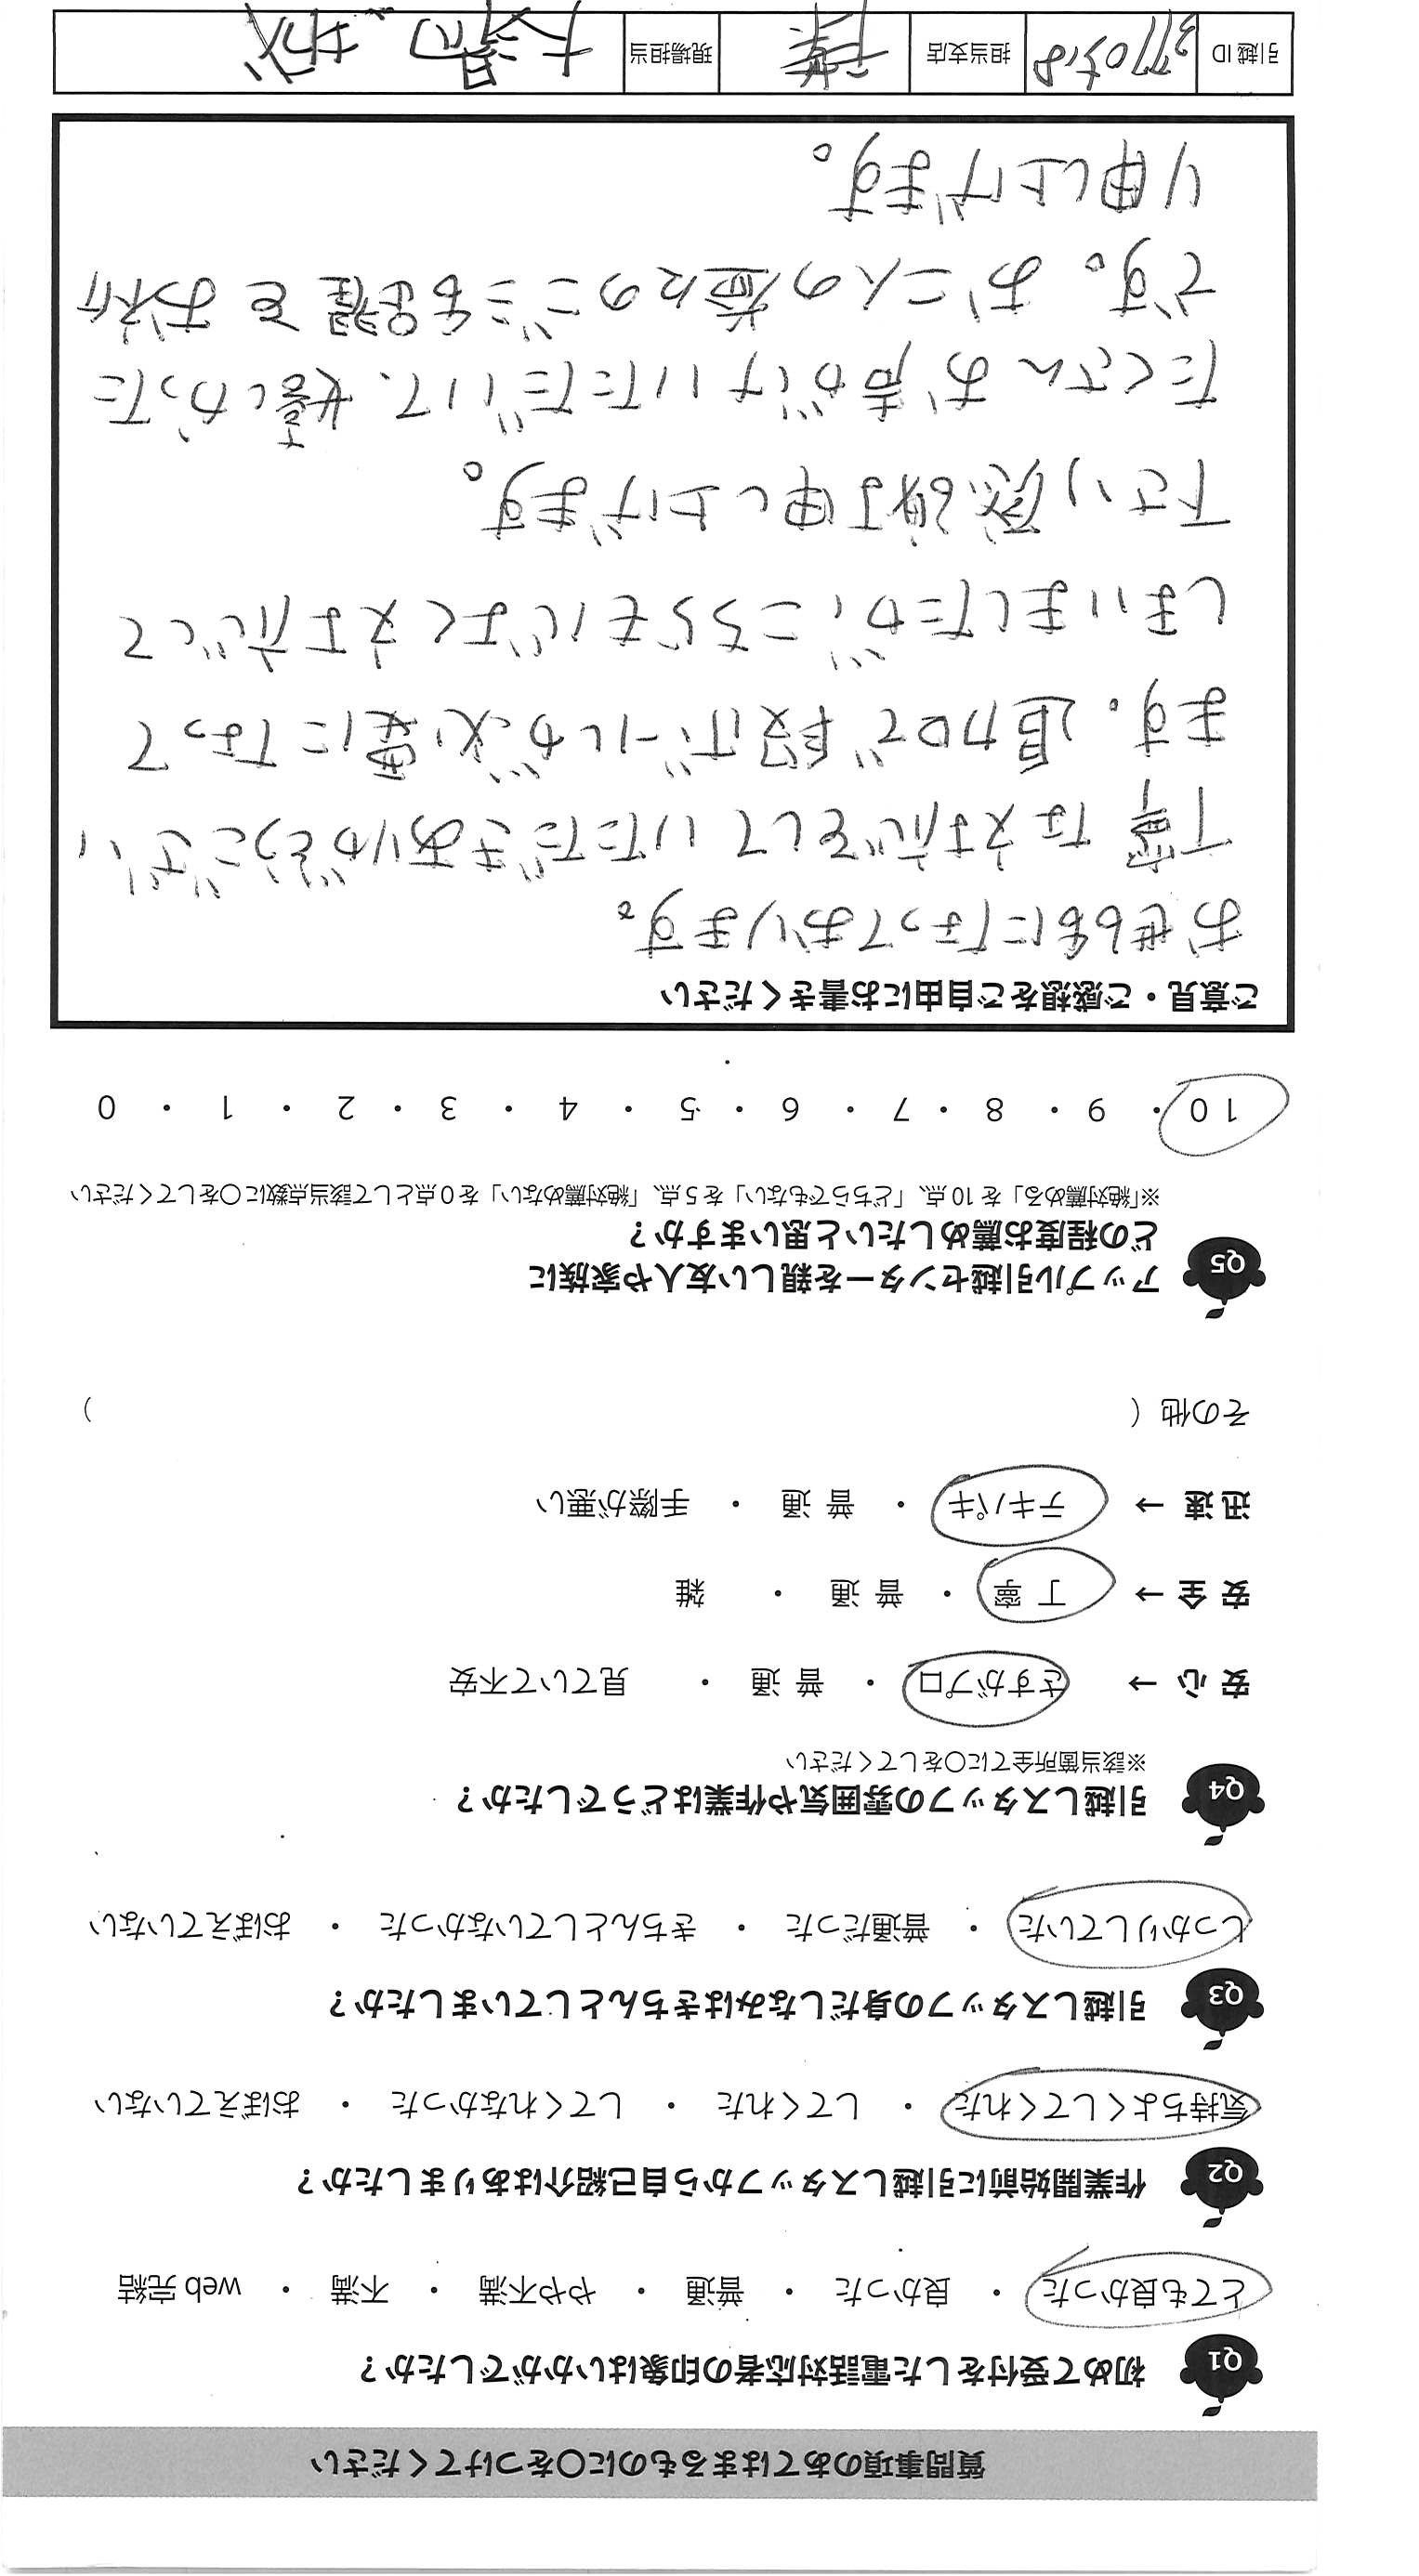 質問事項のあてはまるものに〇をつけてください
Q1 初めて受付をした電話対応者の印象はいかがでしたか？
とても良かった ・ 良かった ・ 普通 ・ やや不満 ・ 不満 ・ web 完結
Q2 作業開始前に引越しスタッフから自己紹介はありましたか？
気持ちよくしてくれた ・ してくれた ・ してくれなかった ・ おぼえていない
Q3 引越しスタッフの身だしなみはきちんとしていましたか？
しっかりしていた ・ 普通だった ・ きちんとしていなかった ・ おぼえていない
Q4 引越しスタッフの雰囲気や作業はどうでしたか？
※該当箇所全てに〇をしてください
安心 → さすがプロ ・ 普通 ・ 見ていて不安
安全 → 丁寧 ・ 普通 ・ 雑
迅速 → テキパキ ・ 普通 ・ 手際が悪い
その他（ ）
Q5 アップル引越センターを親しい友人や家族に
どの程度お薦めしたいと思いますか？
※「絶対薦める」を 10 点、「どちらでもない」を 5 点、「絶対薦めない」を 0 点として該当点数に〇をしてください
10 ・ 9 ・ 8 ・ 7 ・ 6 ・ 5 ・ 4 ・ 3 ・ 2 ・ 1 ・ 0
ご意見・ご感想をご自由にお書きください
おせわになっております。
丁寧な対応をしていただきありがとうござい
ます。追加で段ボールが必要になって
しまいましたが、こちらも心よく対応して
下さり感謝申し上げます。
たくさんお声がけいただいて、嬉しかった
です。お二人の益々のご活躍をお祈
り申し上げます。
引越 ID 担当支店 千葉 現場担当 大沼